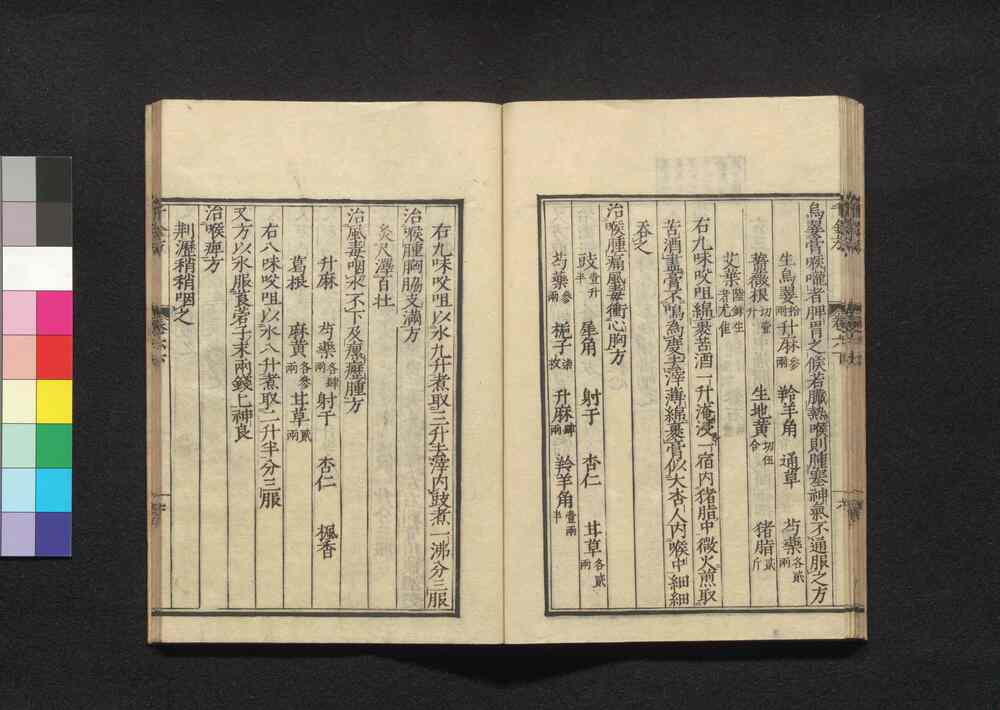 烏翣膏喉嚨者脾胃之候若臟熱喉則腫塞神氣不通服之方
生烏翣拾兩 升麻參兩 羚羊角 通草 芍藥各貳兩
薔薇根切壹升 生地黃切伍合 猪脂貳斤
艾葉
右九味㕮咀綿裹苦酒一升淹浸一宿內猪脂中微火煎取
苦酒盡膏不鳴爲度去滓薄綿裹膏似大杏人內喉中細細
吞之
治喉腫痛風毒衝心胸方
豉壹升半 犀角 射干 杏仁 甘草各貳兩
芍藥參兩 梔子柒枚 升麻肆兩 羚羊角壹兩半
右九味㕮咀以水九升煮取三升去滓內豉煮一沸分三服
治喉腫胸脇支滿方
灸尺澤百壯
治風毒咽水不下及瘰癧腫方
升麻 芍藥各肆兩 射干 杏仁 楓香
葛根 麻黃各參兩 甘草貳兩
右八味㕮咀以水八升煮取二升半分三服
又方以水服莨菪子末兩錢匕神良
治喉痹方
荆瀝稍稍咽之